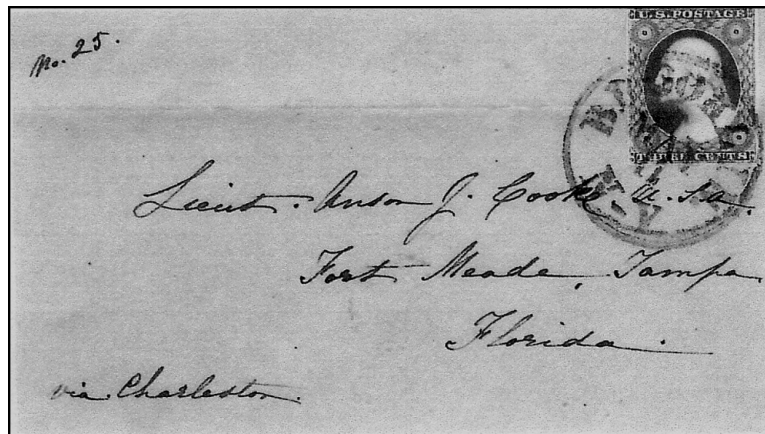 No. 25.
U.S. POSTAGE
THREE CENTS
Lieut. Anson J. Cooke U.S.A.
Fort Meade, Tampa
Florida.
via Charleston.